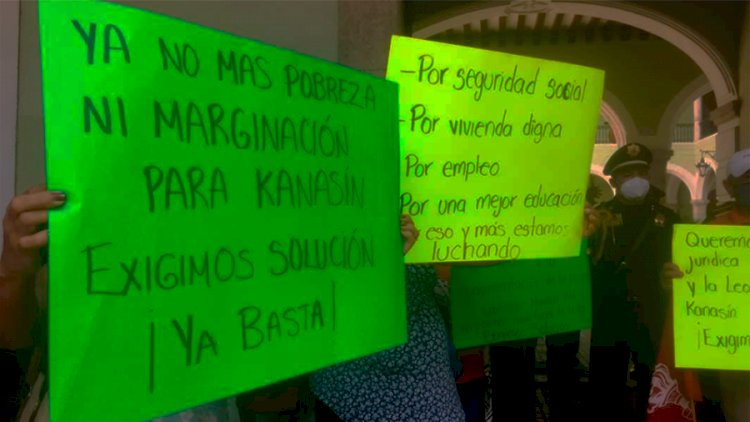 YA NO MAS POBREZA
NI MARGINACIÓN
PARA KANASÍN
EXIGIMOS SOLUCIÓN
¡YA BASTA!
-Por seguridad social
-Por vivienda digna
Por empleo
Por una mejor educación
eso y más estamos
luchando
Queremo
jurídica
y la Leg
Kanasín
¡Exigim